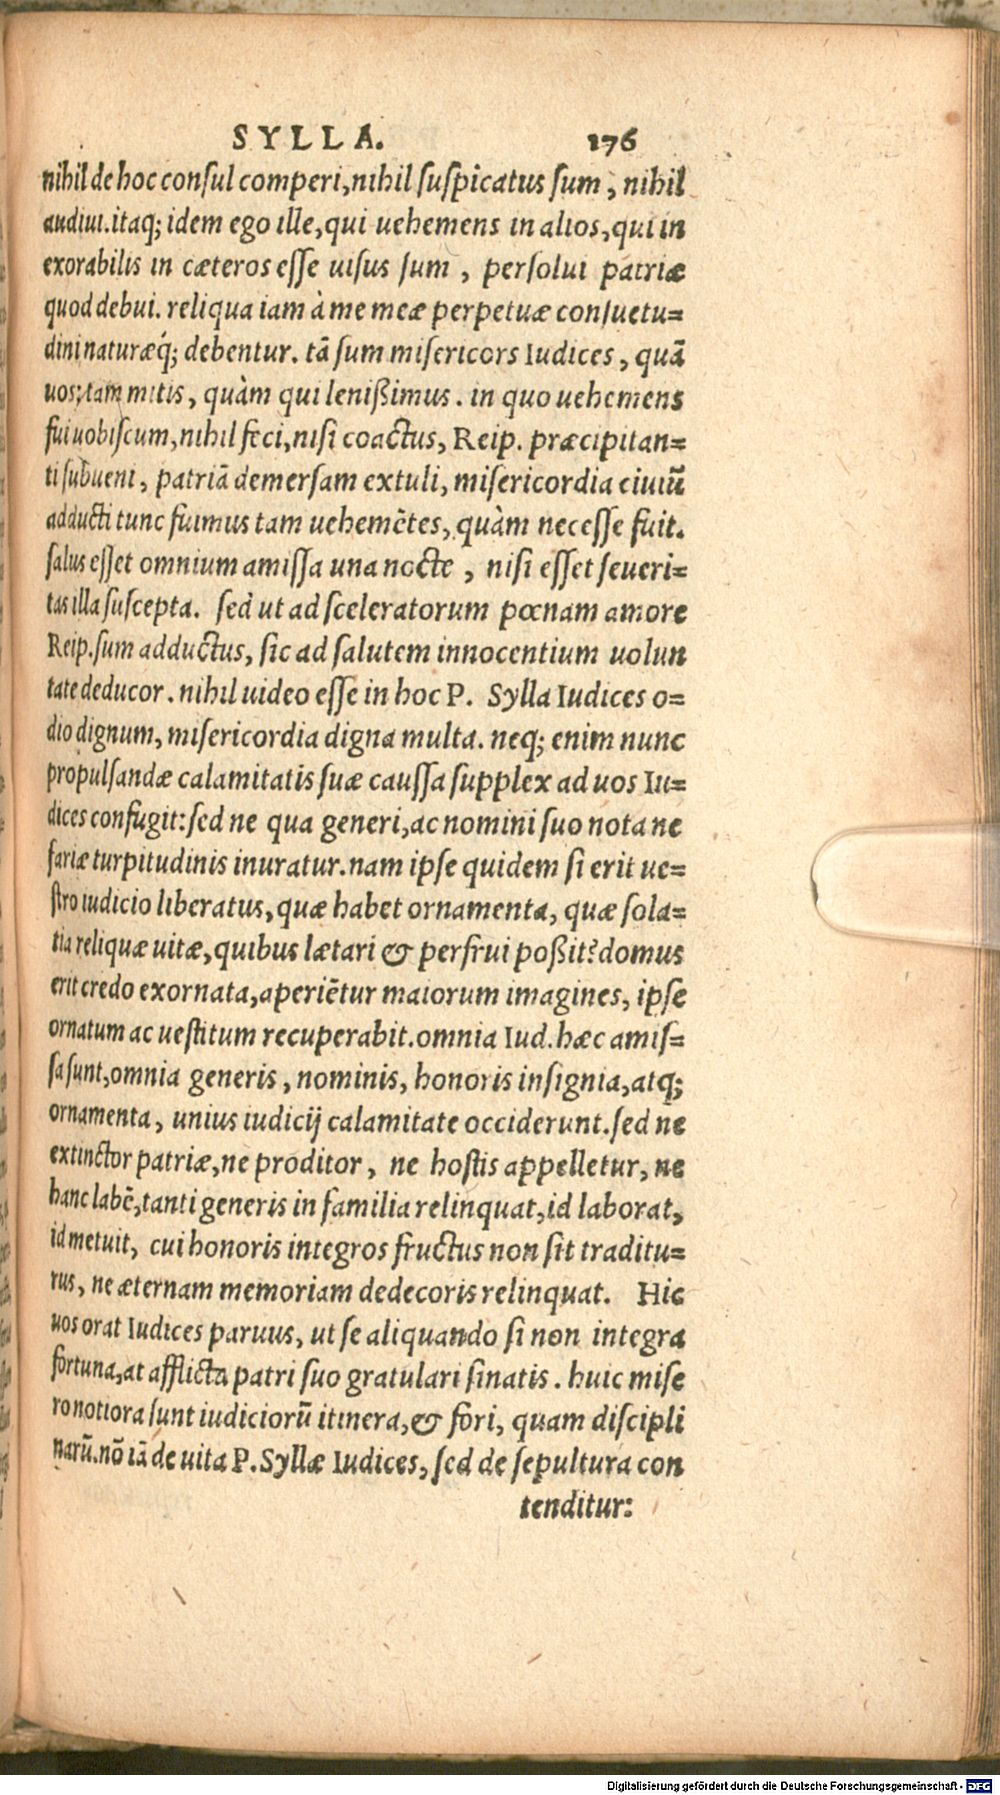 SYLLA. 176
nihil de hoc consul comperi, nihil suspicatus sum, nihil
audiui. itaq; idem ego ille, qui uehemens in alios, qui in
exorabilis in cæteros esse uisus sum, persolui patriæ
quod debui. reliqua iam à me meæ perpetuæ consuetu=
dini naturæq́; debentur. tā sum misericors Iudices, quā
uos; tam mitis, quàm qui lenißimus. in quo uehemens
fui uobiscum, nihil feci, nisi coactus, Reip. præcipitan=
ti subueni, patriā demersam extuli, misericordia ciuiū
adducti tunc fuimus tam uehemētes, quàm necesse fuit.
salus esset omnium amissa una nocte, nisi esset seueri=
tas illa suscepta. sed ut ad sceleratorum pœnam amore
Reip. sum adductus, sic ad salutem innocentium uolun
tate deducor. nihil uideo esse in hoc P. Sylla Iudices o=
dio dignum, misericordia digna multa. neq; enim nunc
propulsandæ calamitatis suæ caussa supplex ad uos Iu=
dices confugit: sed ne qua generi, ac nomini suo nota ne
fariæ turpitudinis inuratur. nam ipse quidem si erit ue=
stro iudicio liberatus, quæ habet ornamenta, quæ sola=
tia reliquæ uitæ, quibus lætari & perfrui poßit? domus
erit credo exornata, aperiētur maiorum imagines, ipse
ornatum ac uestitum recuperabit. omnia Iud. hæc amis=
sa sunt, omnia generis, nominis, honoris insignia, atq;
ornamenta, unius iudicij calamitate occiderunt. sed ne
extinctor patriæ, ne proditor, ne hostis appelletur, ne
hanc labē, tanti generis in familia relinquat, id laborat,
id metuit, cui honoris integros fructus non sit traditu=
rus, ne æternam memoriam dedecoris relinquat. Hic
uos orat Iudices paruus, ut se aliquando si non integra
fortuna, at afflicta patri suo gratulari sinatis. huic mise
ro notiora sunt iudiciorū itinera, & fori, quam discipli
narū. nō iā de uita P. Syllæ Iudices, sed de sepultura con
tenditur:
Digitalisierung gefördert durch die Deutsche Forschungsgemeinschaft - DFG